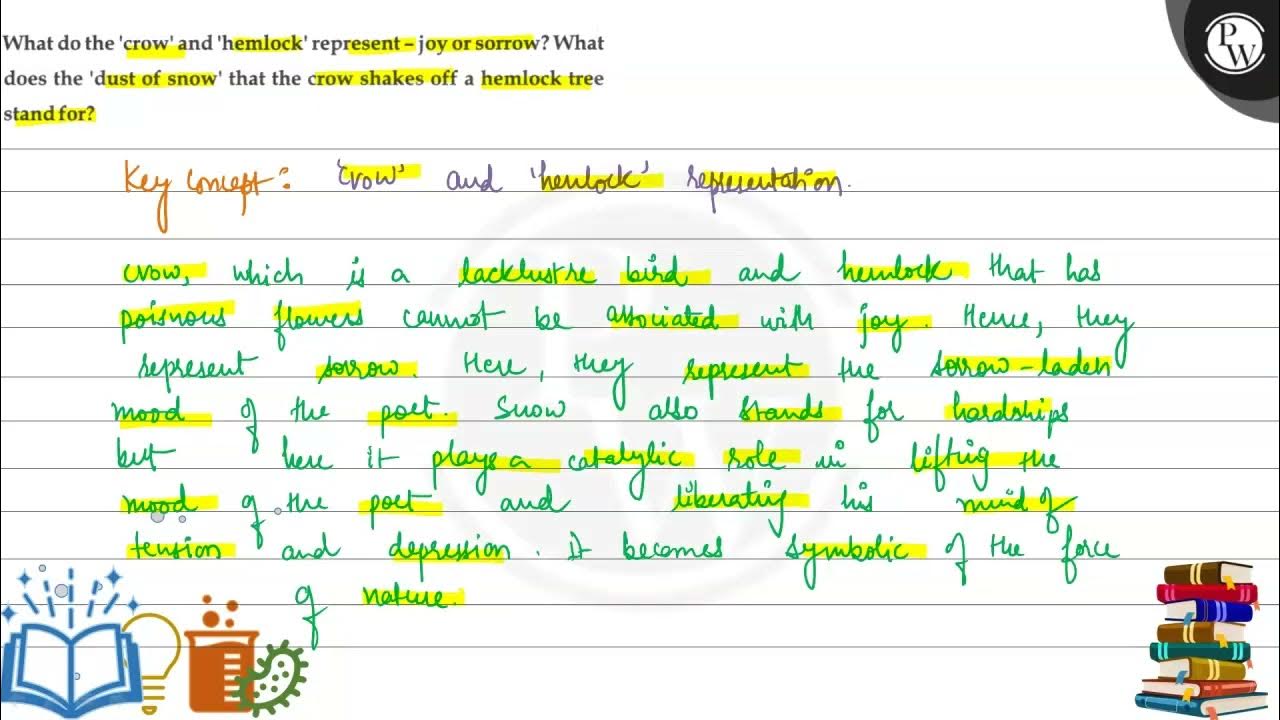 What do the 'crow' and 'hemlock' represent – joy or sorrow? What
does the 'dust of snow' that the crow shakes off a hemlock tree
stand for?
P
W
Key Concept: 'crow' and 'hemlock' representation.
crow, which is a lacklustre bird and hemlock that has
poisnous flowers cannot be associated with joy. Hence, they
represent sorrow. Here, they represent the sorrow-laden
mood of the poet. Snow also stands for hardships
but here it plays a catalytic role in lifting the
mood of the poet and liberating his mind of
tension and depression. it becomes symbolic of the force
of nature.